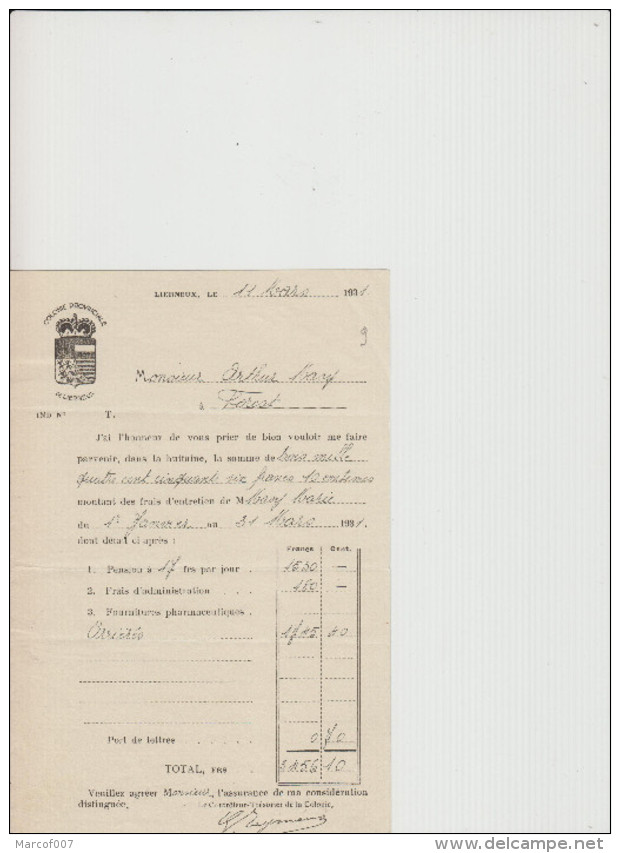 LIERNEUX, LE 11 Mars 1931.
COLONIE PROVINCIALE
9
DE LIERNEUX
Monsieur Arthur
à Forest
IND Nº T.
J'ai l'honneur de vous prier de bien vouloir me faire
parvenir, dans la huitaine, la somme de trois mille
quatre cent cinquant six francs 10 centimes
montant des frais d'entretien de M Marie
du 1r Janvier au 31 Mars 1931.
dont détail ci après :
Francs Cent.
1. Pension à 17 frs par jour . 1530 —
2. Frais d'administration . . . 180 —
3. Fournitures pharmaceutiques .
Arriérés 1745 40
Port de lettres . . . . . 0 70
TOTAL, FRS . 3456 10
Veuillez agréer Monsieur, l'assurance de ma considération
distinguée.
Le Contrôleur-Trésorier de la Colonie,
Marcof007
delcampe.net